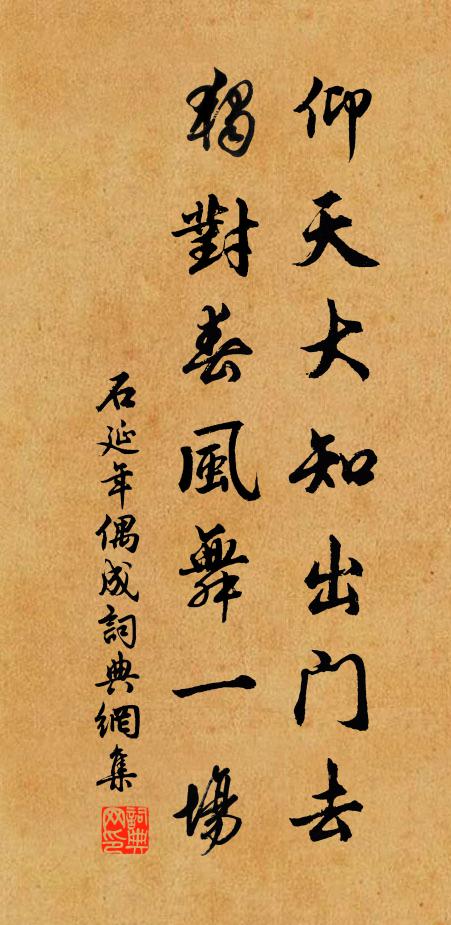 仰天大知出门去
獨對春風舞一場
石延年偶成詞典網集
詞典
网印